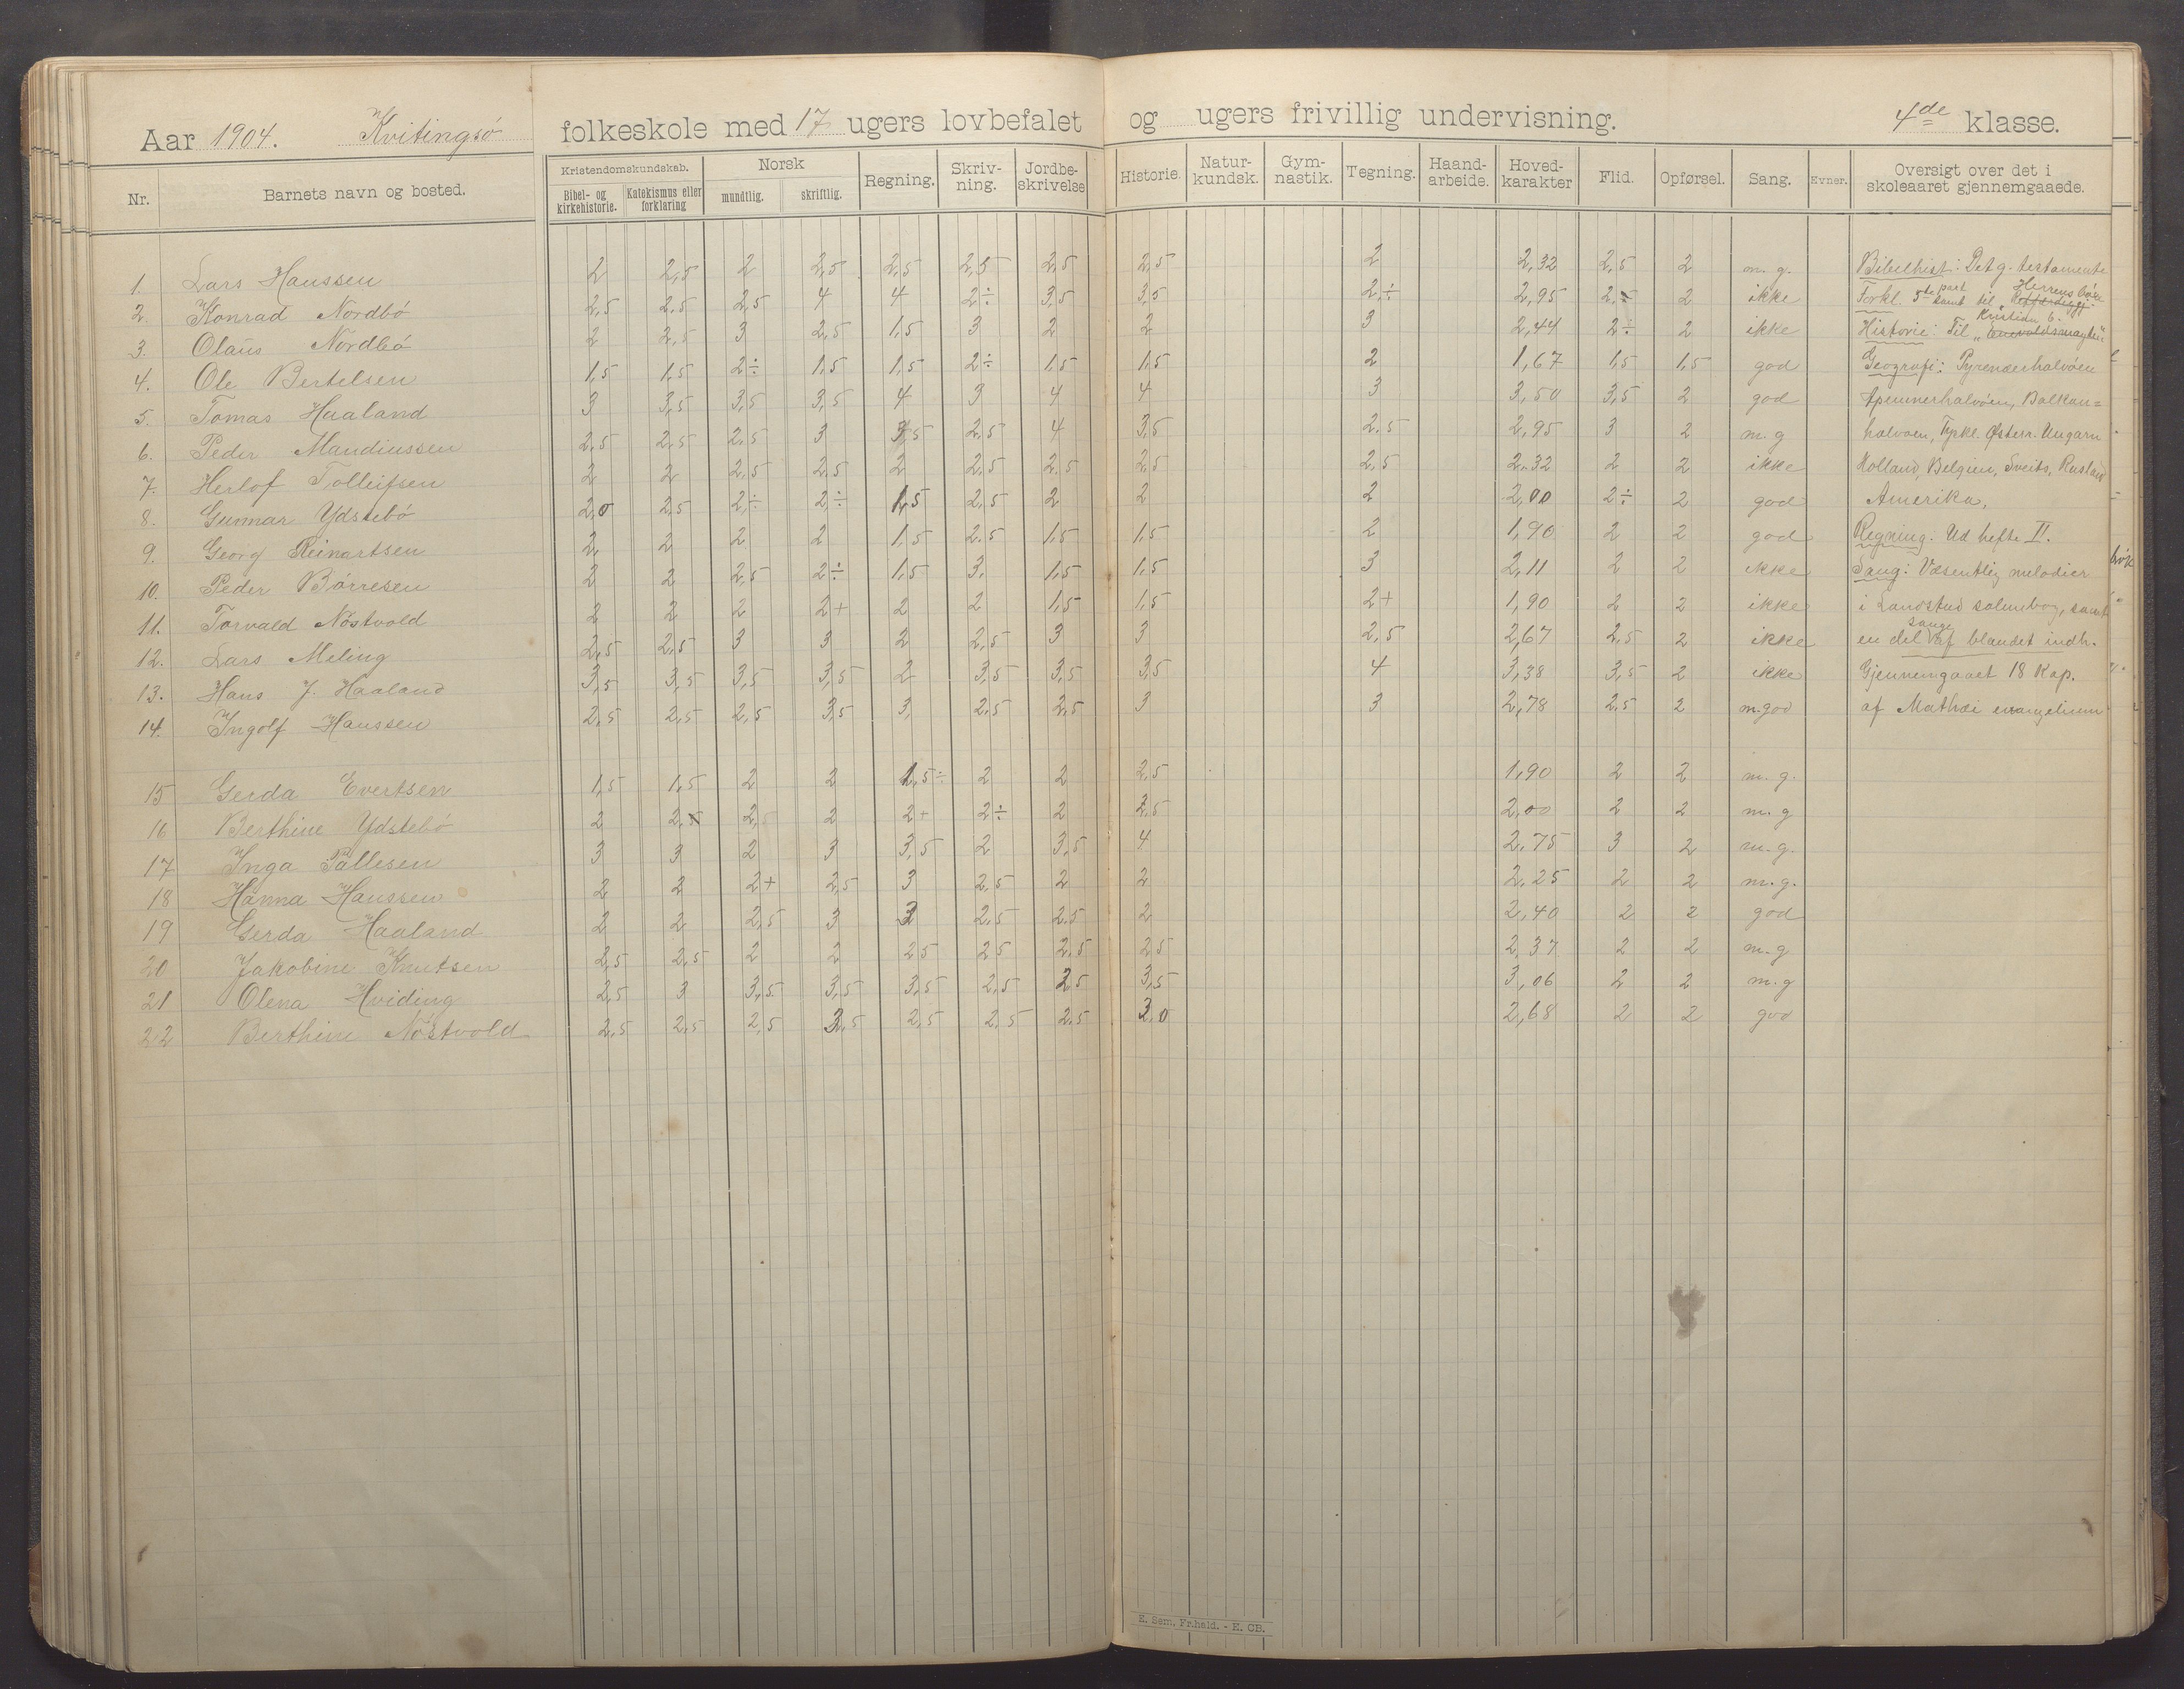 Aar 1904. Kvitingsö folkeskole med 17 ugers lovbefalet og ugers frivillig undervisning. 4de klasse.
Nr. Barnets navn og bosted. Kristendomskundskab. Bibel- og kirkehistorie. Katekismus eller forklaring Norsk mundtlig. skriftlig. Regning. Skrivning. Jordbeskrivelse Historie. Naturkundsk. Gymnastik. Tegning. Haandarbeide. Hovedkarakter Flid. Opførsel. Sang. Evner. Oversigt over det i skoleaaret gjennemgaaede.
1. Lars Hanssen 2 2,5 2 2,5 2,5 2,5 2,5 2,5 2 2,32 2,5 2 m. g. Bibelhist: Det g. testamente
2. Konrad Nordbö 2,5 2,5 2,5 4 4 2÷ 3,5 3,5 2÷ 2,95 2,5 2 ikke Forkl. 5te part samt til Herrens bön
3. Olaus Nordbö 2 2,5 3 2,5 1,5 3 2 2 3 2,44 2÷ 2 ikke Historie: Til Kristian 6.
4. Ole Bertelsen 1,5 1,5 2÷ 1,5 1,5 2÷ 1,5 1,5 2 1,67 1,5 1,5 god Geografi: Pyrenæerhalvöen
5. Tomas Hualand 3 3,5 3,5 3,5 4 3 4 4 3 3,50 3,5 2 god Apenninerhalvöen, Balkan=
6. Peder Mandiussen 2,5 2,5 2,5 3 3,5 2,5 4 3,5 2,5 2,95 3 2 m. g halvöen, Tyrkl. Østerr. Ungarn
7. Herlof Tolleifsen 2 2 2,5 2,5 2 2,5 2,5 2,5 2,5 2,32 2 2 ikke Holland, Belgien, Sveits, Rusland
8. Gunnar Ydstebö 2,0 2,5 2÷ 2÷ 1,5 2,5 2 2 2 2,00 2÷ 2 god Amerika,
9. Georg Reinertsen 2, 2 2 2 1,5 2,5 1,5 1,5 2 1,90 2 2 god Regning. Ud hefte II.
10. Peder Börresen 2 2 2,5 2÷ 1,5 3, 1,5 1,5 3 2,11 2 2 ikke Sang: Væsentlig melodier
11. Torvald Nöstvold 2 2 2 2+ 2 2 1,5 1,5 2+ 1,90 2 2 ikke i Landstad salmebog, samt
12. Lars Meling 2,5 2,5 3 3 2 2,5 3 3 2,5 2,67 2,5 2 ikke en del sange af blandet indh.
13. Hans J. Haaland 3,5 3,5 3,5 3,5 2 3,5 3,5 3,5 4 3,38 3,5 2 ikke Gjennemgaaet 18 Kap.
14. Ingolf Hanssen 2,5 2,5 2,5 3,5 3, 2,5 2,5 3 3 2,78 2,5 2 m.god af Mathæi evangelium
15 Gerda Evertsen 1,5 1,5 2 2 1,5÷ 2 2 2,5 1,90 2 2 m. g.
16 Berthine Ydstebö 2 2,5 2,5 2 2+ 2÷ 2 2,5 2,00 2 2 m. g
17 Inga Pallesen 3 3 2 3 3,5 2 3,5 4 2,75 3 2 m. g.
18 Hanna Hanssen 2 2 2+ 2,5 3 2,5 2 2 2,25 2 2 m. g.
19 Gerda Haaland 2 2 2,5 3 3 2,5 2,5 2 2,40 2 2 god
20 Jakobine Knutsen 2,5 2,5 2 2 2,5 2,5 2,5 2,5 2,37 2 2 m. g
21 Olena Hviding 2,5 3 3,5 3,5 3,5 2,5 2,5 3,5 3,06 2 2 m. g
22 Berthine Nöstvold 2,5 2,5 2,5 3,5 2,5 2,5 2,5 3,0 2,68 2 2 god
E. Sem. Fr.hald. - E. CB.